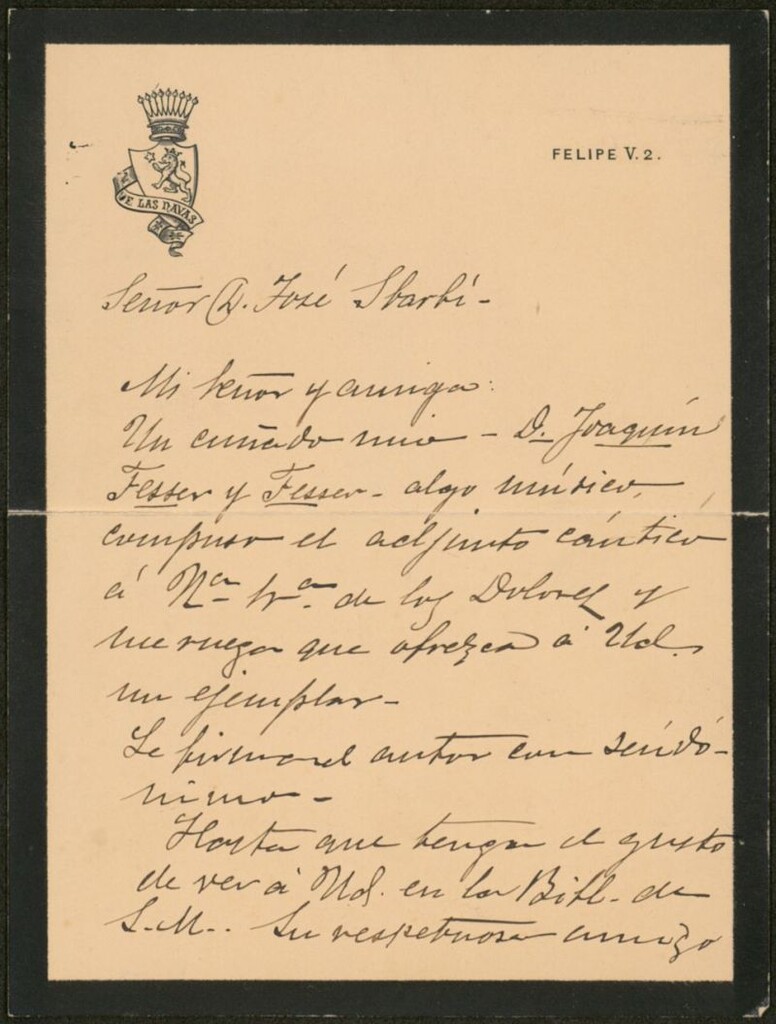 DE LAS NAVAS
FELIPE V. 2.
Señor D. José Sbarbi-
Mi señor y amigo:
Un cuñado mio - D. Joaquín
Fesser y Fesser - algo músico,
compuso el adjunto cántico
á Nª Srª de los Dolores y
me ruega que ofrezca á Ud.
un ejemplar-
Le firma el autor con seudó-
nimo-
Hasta que tenga el gusto
de ver á Ud. en la Bibl. de
S.M.. Su respetuoso amigo